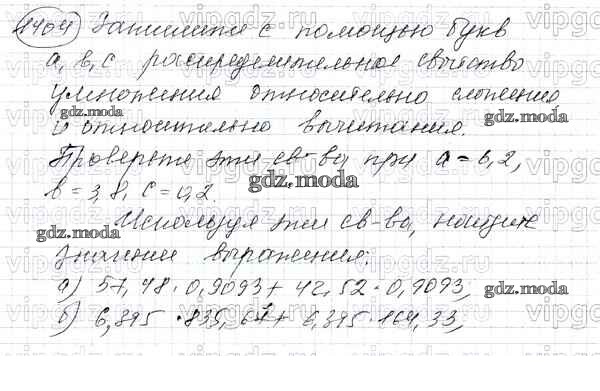 1404 Запишите с помощью букв
a, b, c распределительное свойство
умножения относительно сложения
и относительно вычитания.
Проверьте эти св-ва при a = 6,2,
b = 3,8, c = 0,2.
Используя эти св-ва, найдите
значение выражения:
а) 57,48 · 0,9093 + 42,52 · 0,9093,
б) 6,395 · 835,67 + 6,395 · 164,33,
gdz.moda
gdz.moda
gdz.moda
gdz.moda
gdz.moda
gdz.moda
vipgdz.ru